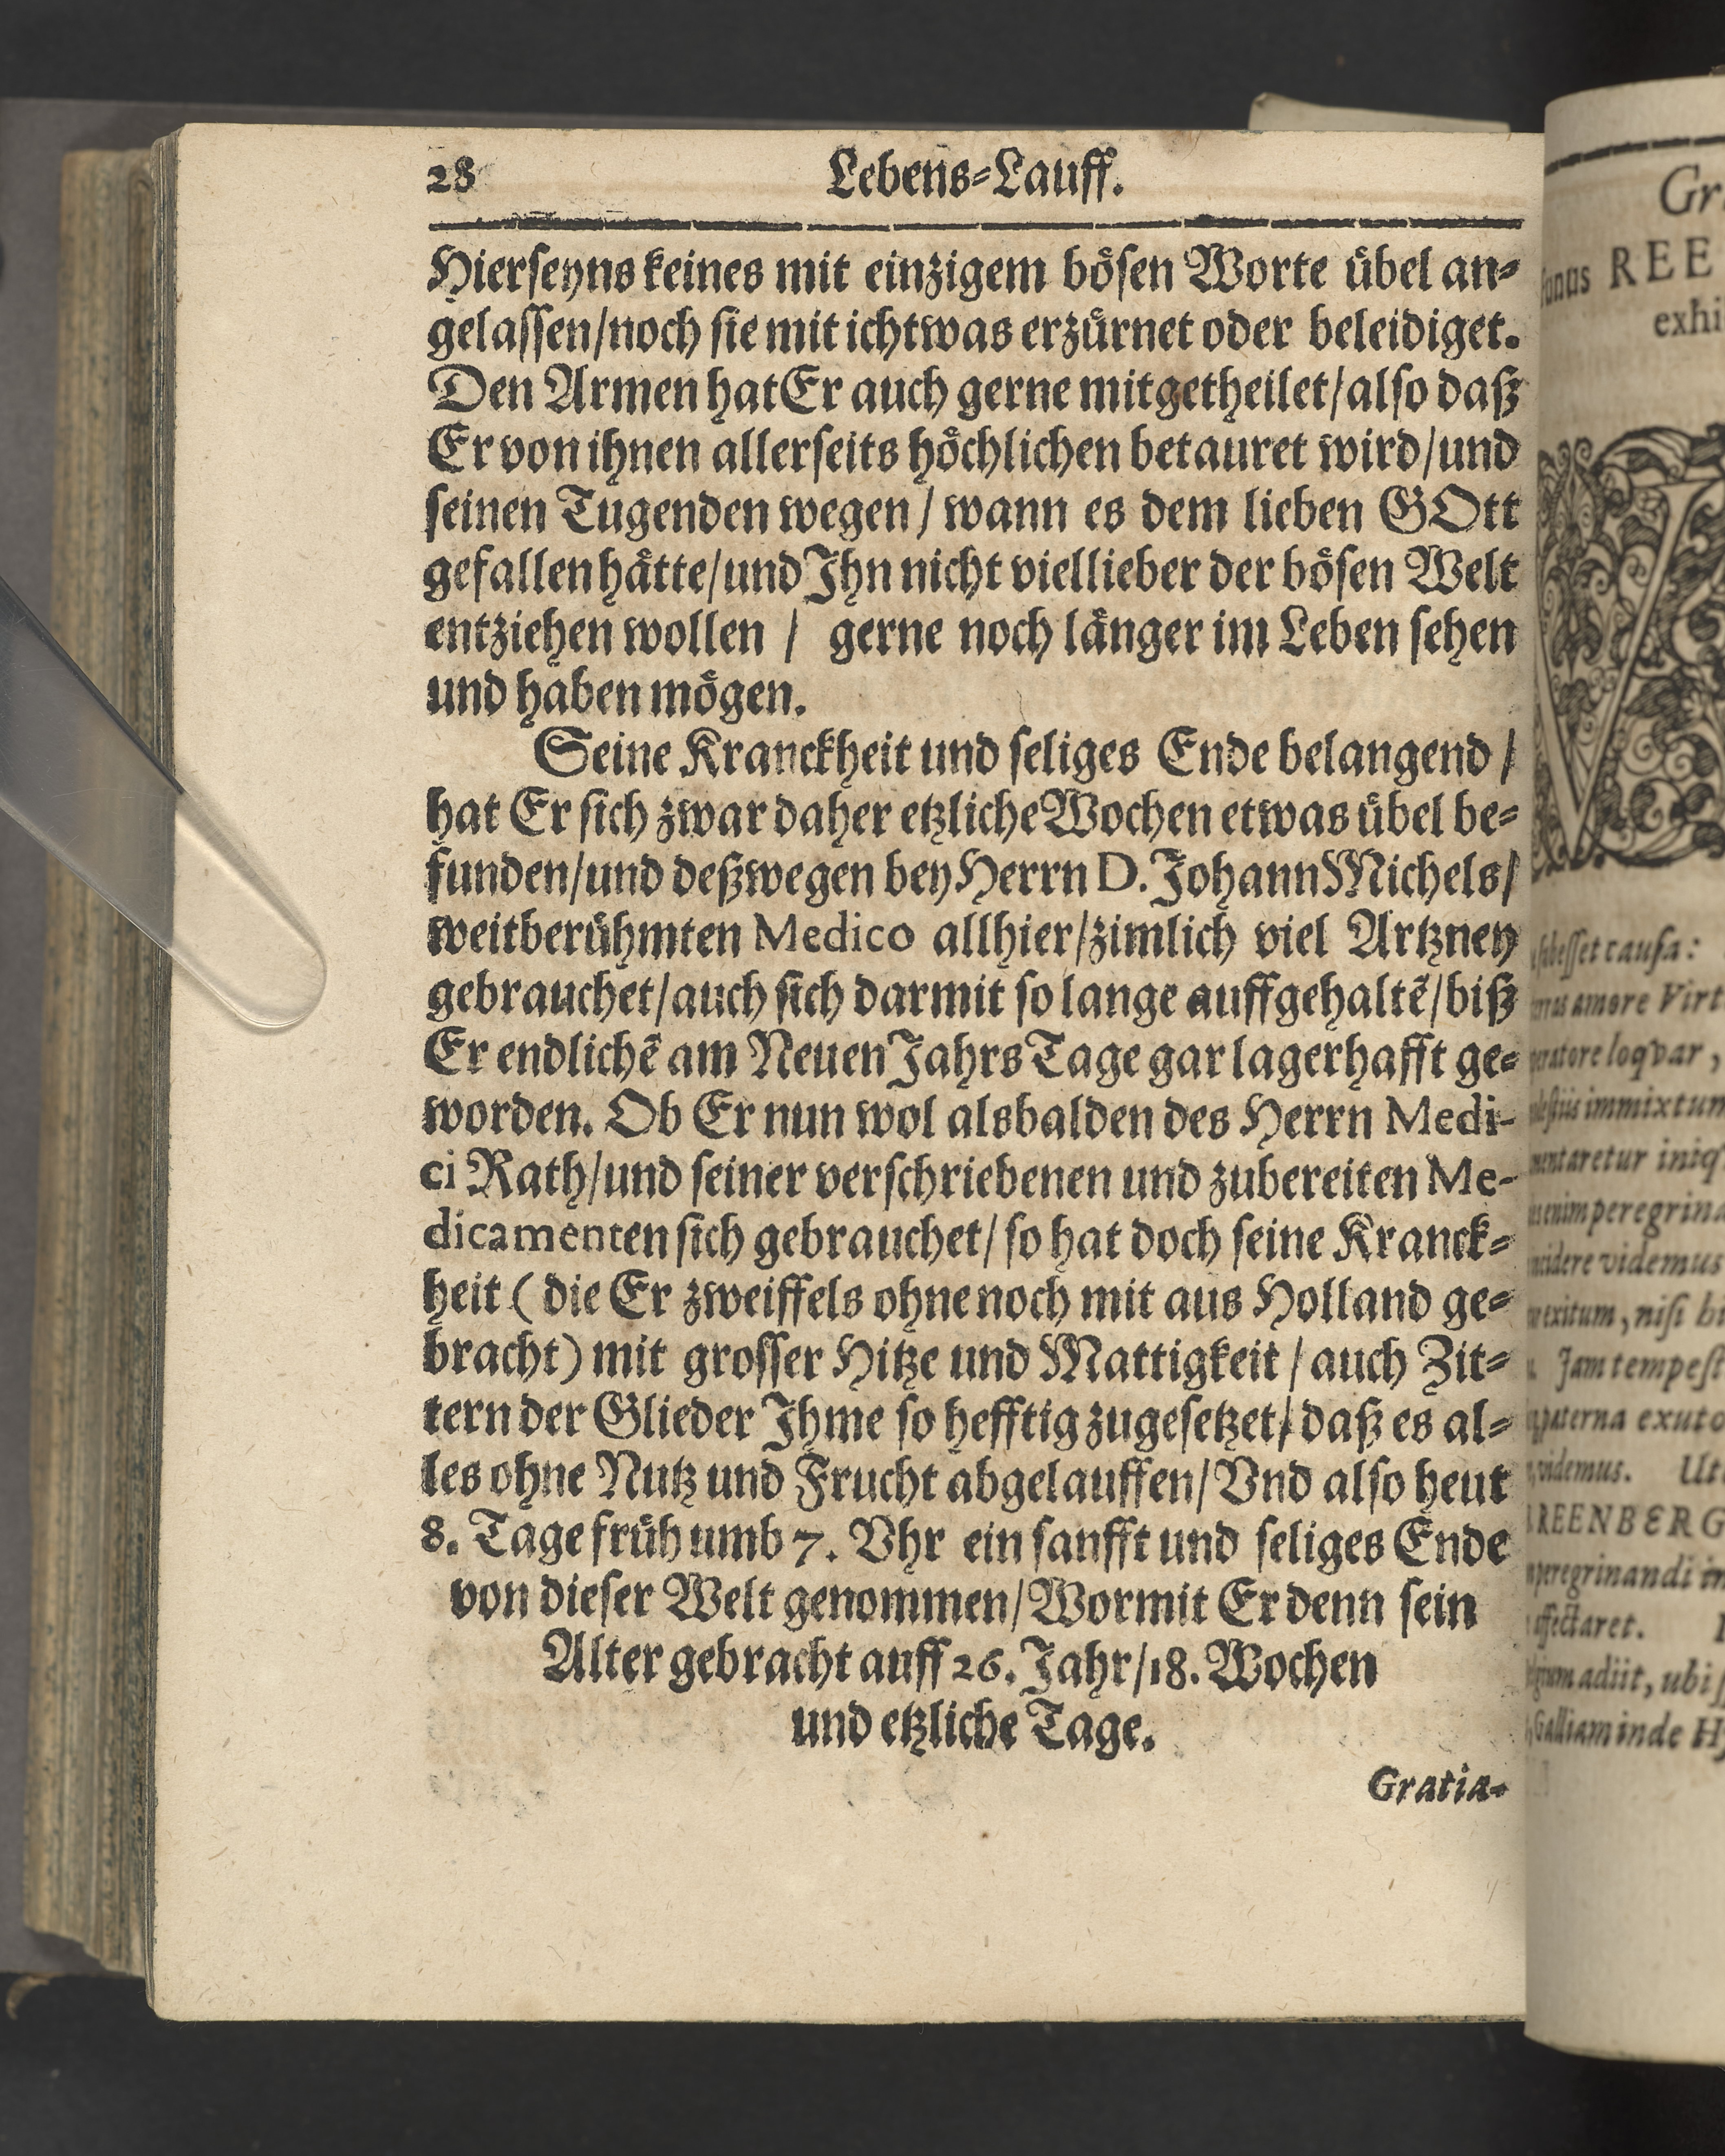 28
Lebens-Lauff.
Hierseyns keines mit einzigem bösen Worte übel an-
gelassen/noch sie mit ichtwas erzürnet oder beleidiget.
Den Armen hat Er auch gerne mitgetheilet/also daß
Er von ihnen allerseits höchlichen betauret wird/und
seinen Tugenden wegen/ wann es dem lieben GOtt
gefallen hätte/und Ihn nicht viellieber der bösen Welt
entziehen wollen / gerne noch länger im Leben sehen
und haben mögen.
Seine Kranckheit und seliges Ende belangend /
hat Er sich zwar daher etzliche Wochen etwas übel be-
funden/und deßwegen bey Herrn D. Johann Michels/
weitberühmten Medico allhier/zimlich viel Artzney
gebrauchet/auch sich darmit so lange auffgehaltẽ/biß
Er endlichẽ am Neuen Jahrs Tage gar lagerhafft ge-
worden. Ob Er nun wol alsbalden des Herrn Medi-
ci Rath/und seiner verschriebenen und zubereiten Me-
dicamenten sich gebrauchet/ so hat doch seine Kranck-
heit ( die Er zweiffels ohne noch mit aus Holland ge-
bracht) mit grosser Hitze und Mattigkeit / auch Zit-
tern der Glieder Ihme so hefftig zugesetzet/ daß es al-
les ohne Nutz und Frucht abgelauffen/ Vnd also heut
8. Tage früh umb 7. Vhr ein sanfft und seliges Ende
von dieser Welt genommen/ Wormit Er denn sein
Alter gebracht auff 26. Jahr/18. Wochen
und etzliche Tage.
Gratia-
REE
exhi
causa:
amore Virt
loqvar,
immixtum
peregrina
videmus
nisi
Jam tempest
exuto
REENBERG
peregrinandi
adiit, ubi
Galliam inde